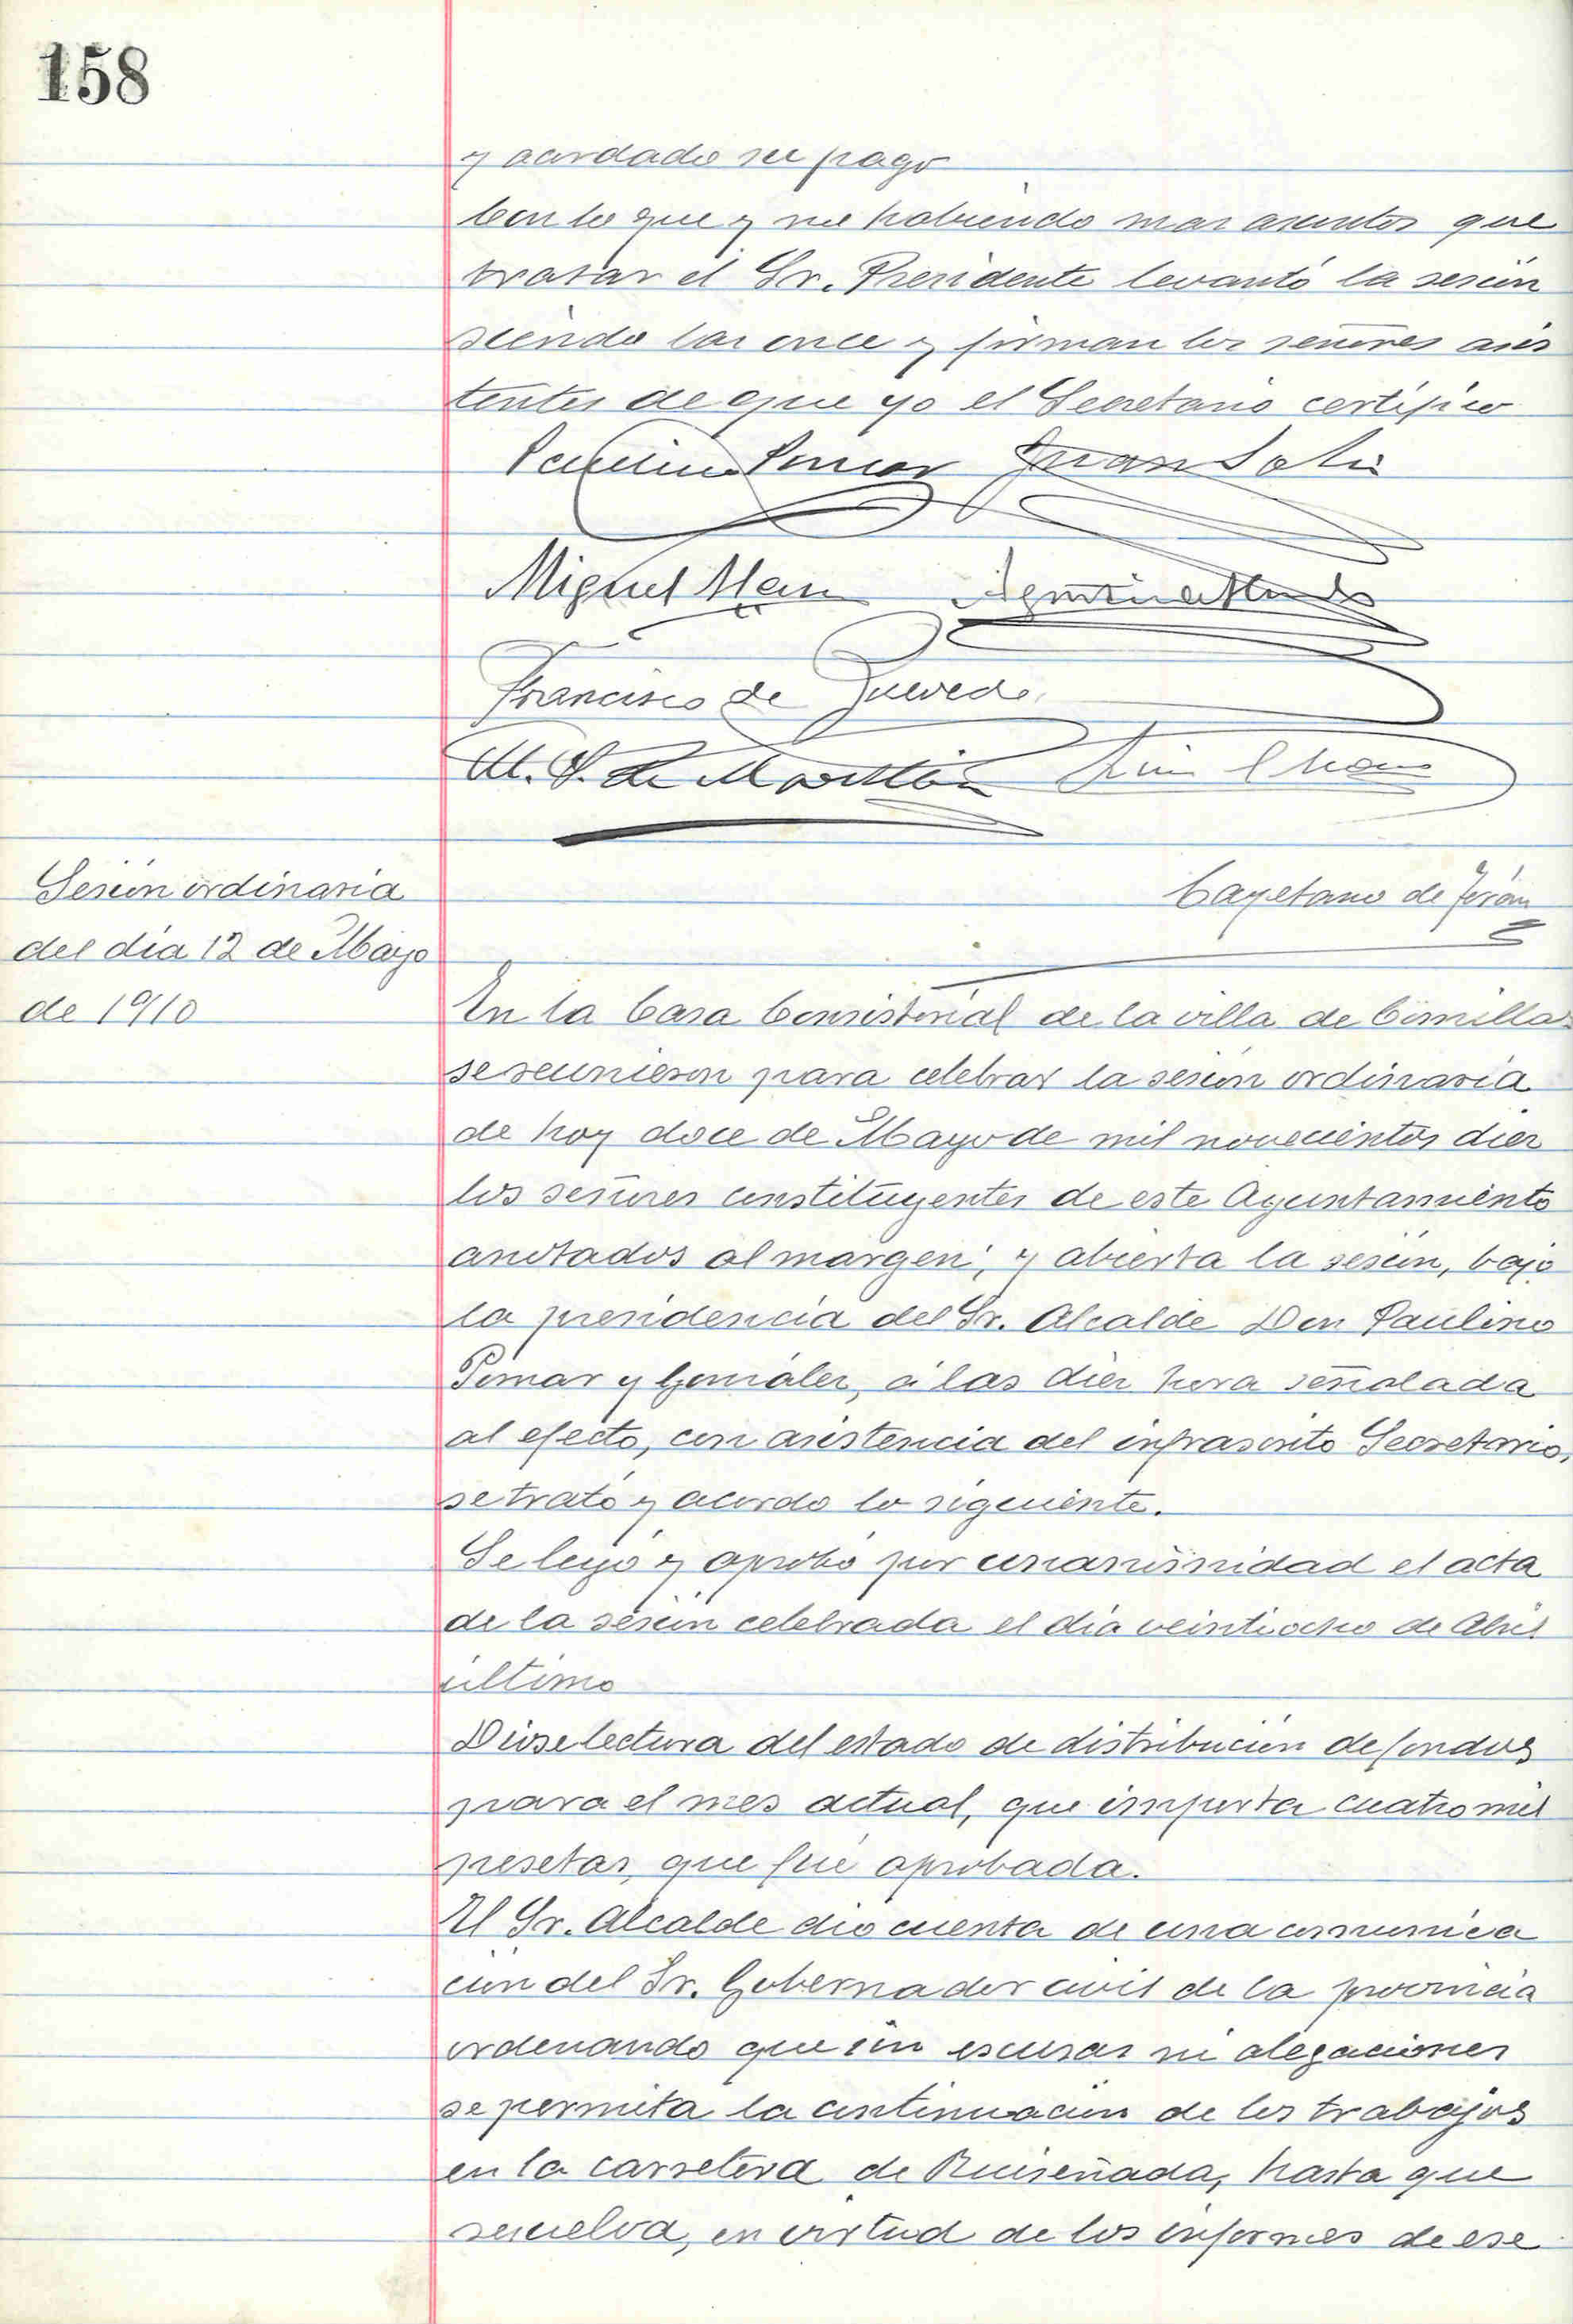 158
y acordado su pago
Con lo que y no habiendo mas asuntos que
tratar el Sr. Presidente levantó la sesión
siendo las once y firman los señores asis
tentes de que yo el Secretario certifico
Paulino Pomar Juan Solis
Miguel
Francisco de Quevedo
M. S. de Movellán
Cayetano de Terán
Sesión ordinaria
del dia 12 de Mayo
de 1910
En la Casa Consistorial de la villa de Comillas
se reunieron para celebrar la sesión ordinaria
de hoy doce de Mayo de mil novecientos diez
los señores constituyentes de este Ayuntamiento
anotados al margen; y abierta la sesión, bajo
la presidencia del Sr. Alcalde Don Paulino
Pomar y González, á las diez hora señalada
al efecto, con asistencia del infrascrito Secretario,
se trató y acordo lo siguiente.
Se leyó y aprobó por unanimidad el acta
de la sesión celebrada el dia veintiocho de Abril
último
Diose lectura del estado de distribución de fondos
para el mes actual, que importa cuatro mil
pesetas, que fué aprobada.
El Sr. Alcalde dio cuenta de una comunica
ción del Sr. Gobernador civil de la provincia
ordenando que sin escusas ni alegaciones
se permita la continuación de los trabajos
en la carretera de Ruiseñada, hasta que
resuelva, en virtud de los informes de ese